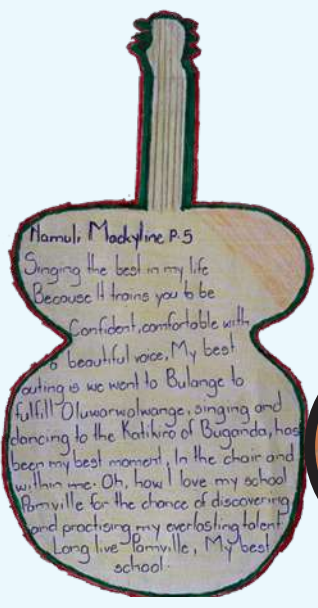 Namuli Mackyline P.5
Singing the best in my life
Because It trains you to be
Confident, comfortable with
a beautiful voice, My best
outing is we went to Bulange to
fulfill Oluwarwolwange, singing and
dancing to the Katikiro of Buganda, has
been my best moment, In the chair and
within me. Oh, how I love my school
Pamville for the chance of discovering
and practising my everlasting talent
Long live Pamville, My best
school.